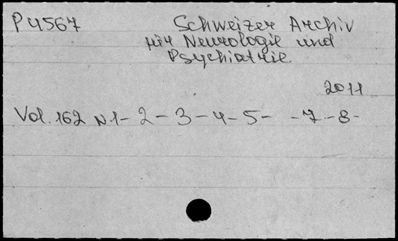 P4567 Schweizer Archiv
für Neurologie und
Psychiatrie.
2011
Vol. 162 N.1- 2 - 3 - 4 - 5 - - 7 - 8 -